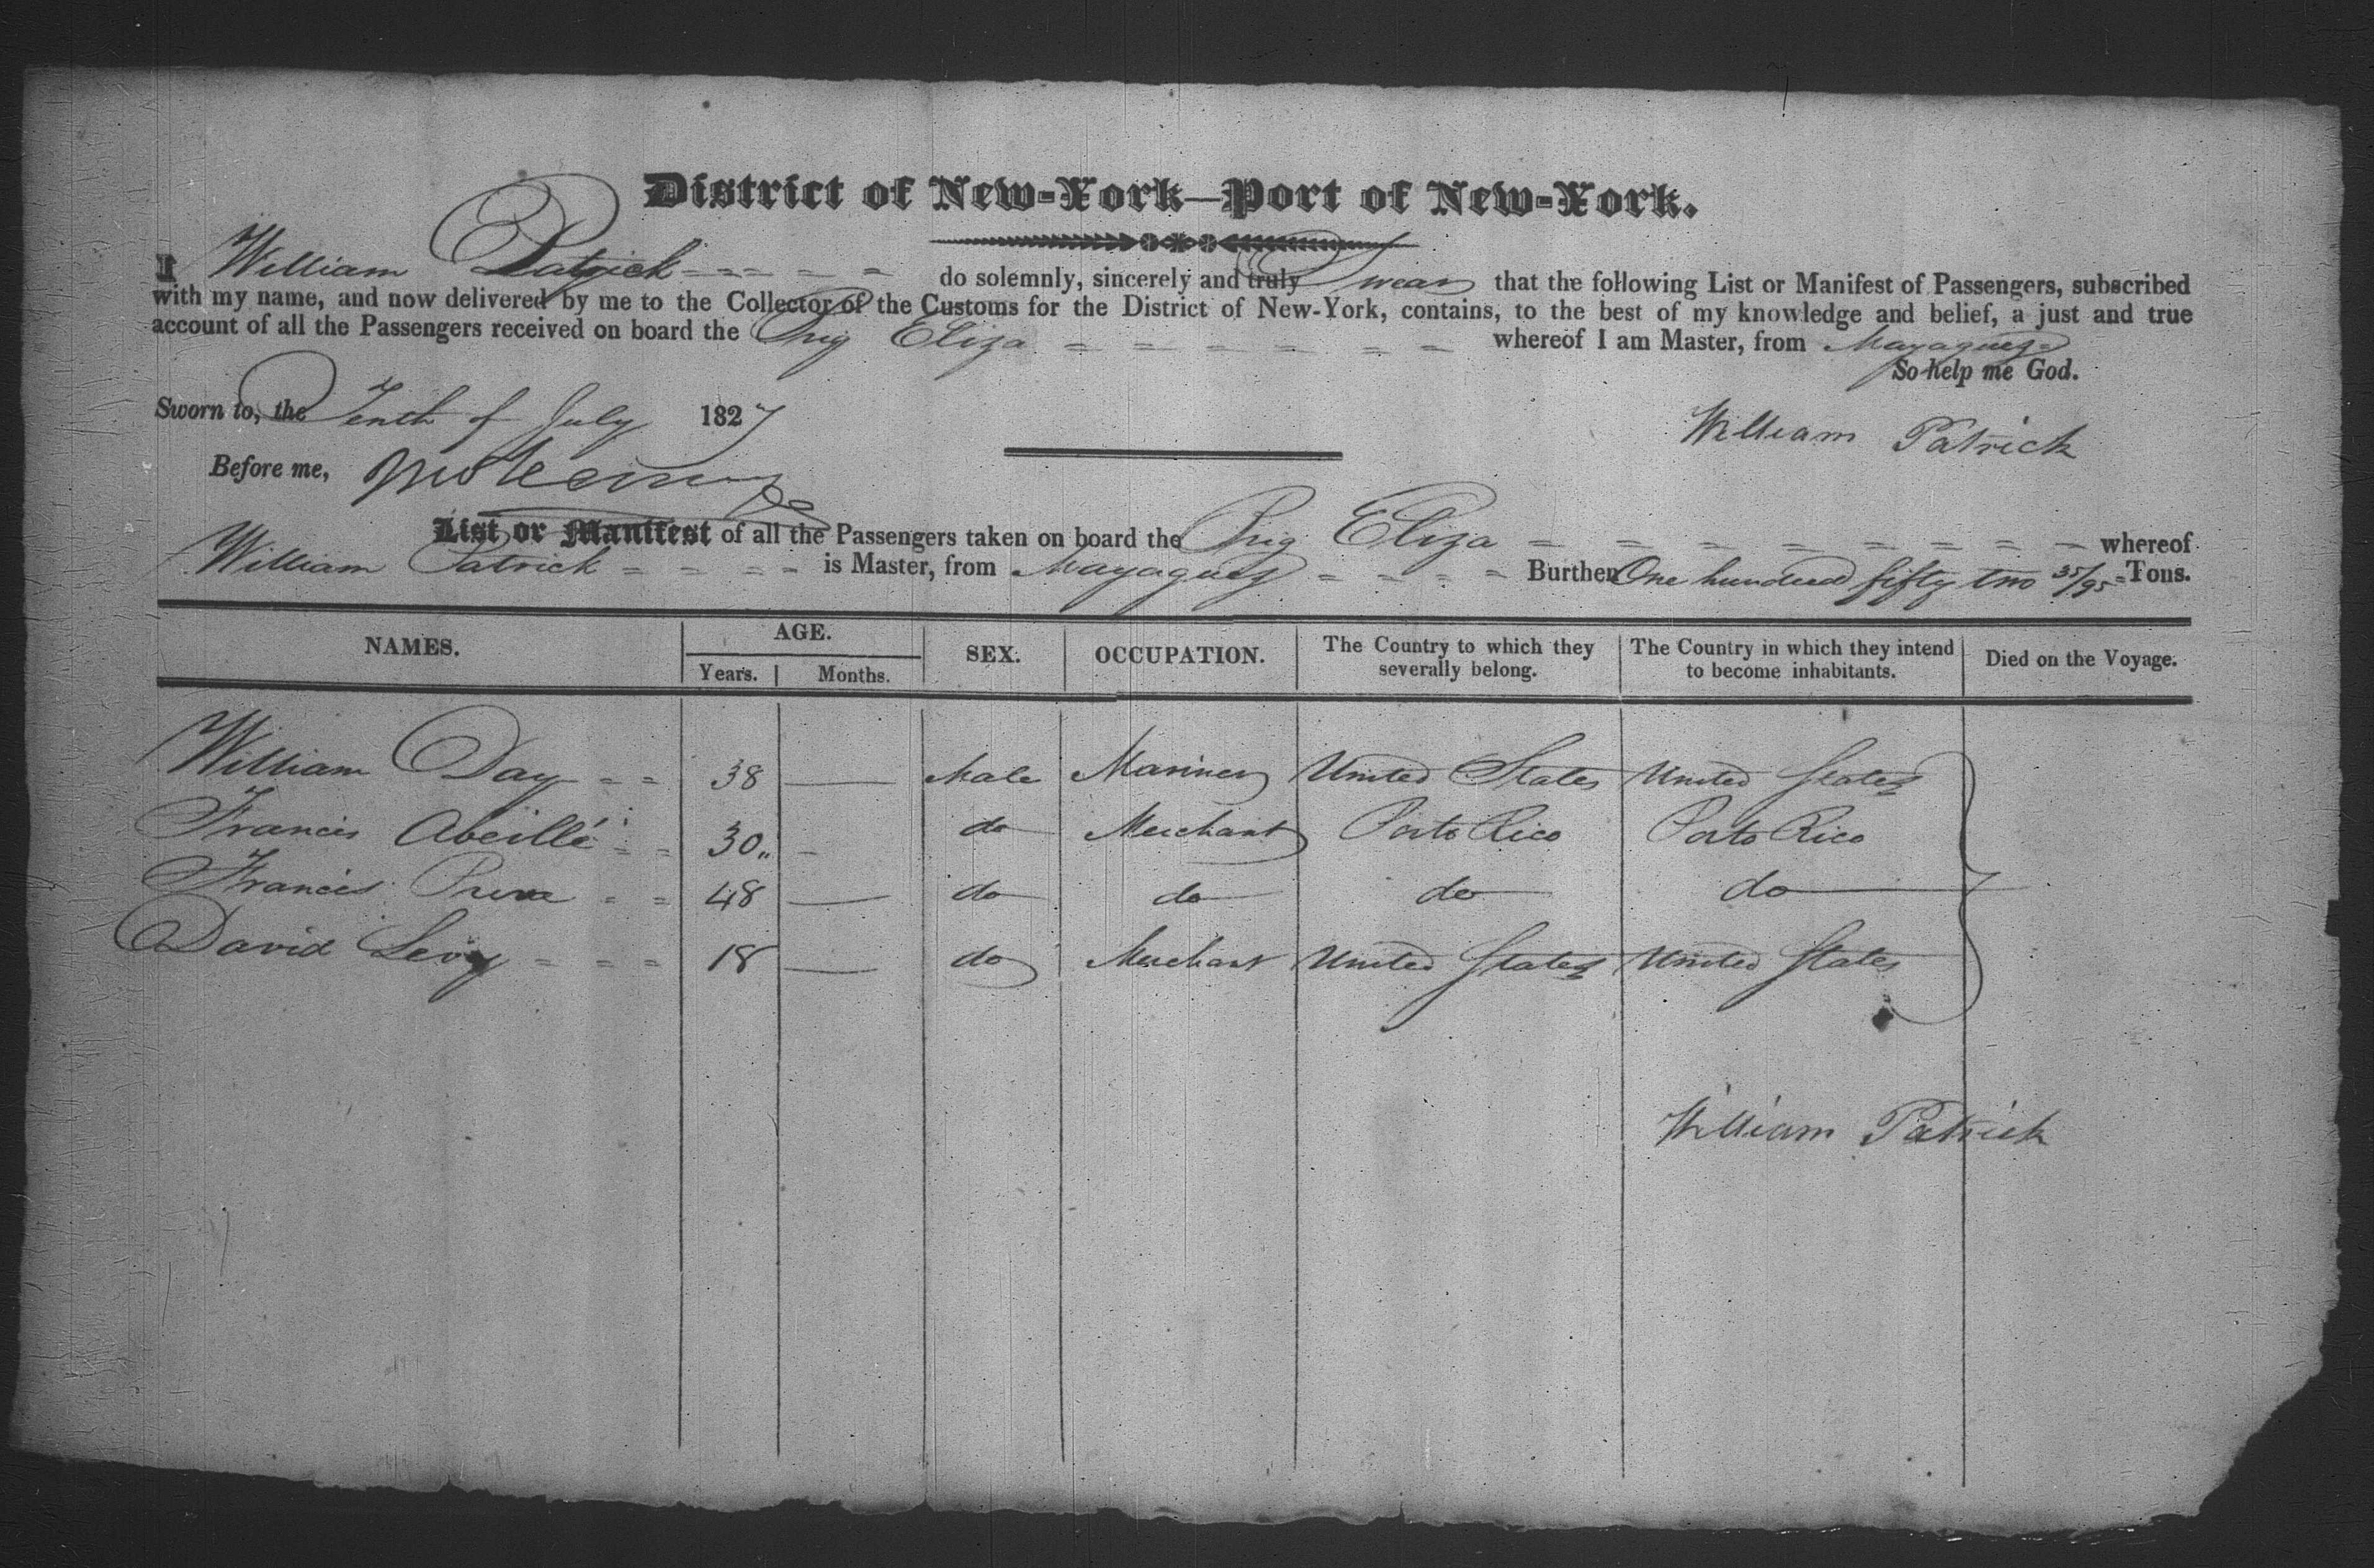 District of New-York—Port of New-York.
I William Patrick do solemnly, sincerely and truly Swear that the following List or Manifest of Passengers, subscribed
with my name, and now delivered by me to the Collector of the Customs for the District of New-York, contains, to the best of my knowledge and belief, a just and true
account of all the Passengers received on board the Brig Eliza whereof I am Master, from Mayaguez
So help me God.
Sworn to, the Tenth of July 1827
William Patrick
Before me,
List or Manifest of all the Passengers taken on board the Brig Eliza whereof
William Patrick is Master, from Mayaguez Burthen One hundred fifty two 35/95 Tons.
NAMES. AGE. Years. Months. SEX. OCCUPATION. The Country to which they severally belong. The Country in which they intend to become inhabitants. Died on the Voyage.
William Day 38 Male Mariner United States United States
Francis Abeillé 30 do Merchant Porto Rico Porto Rico
Francis 48 do do do do
David Levy 18 do Merchant United States United States
William Patrick